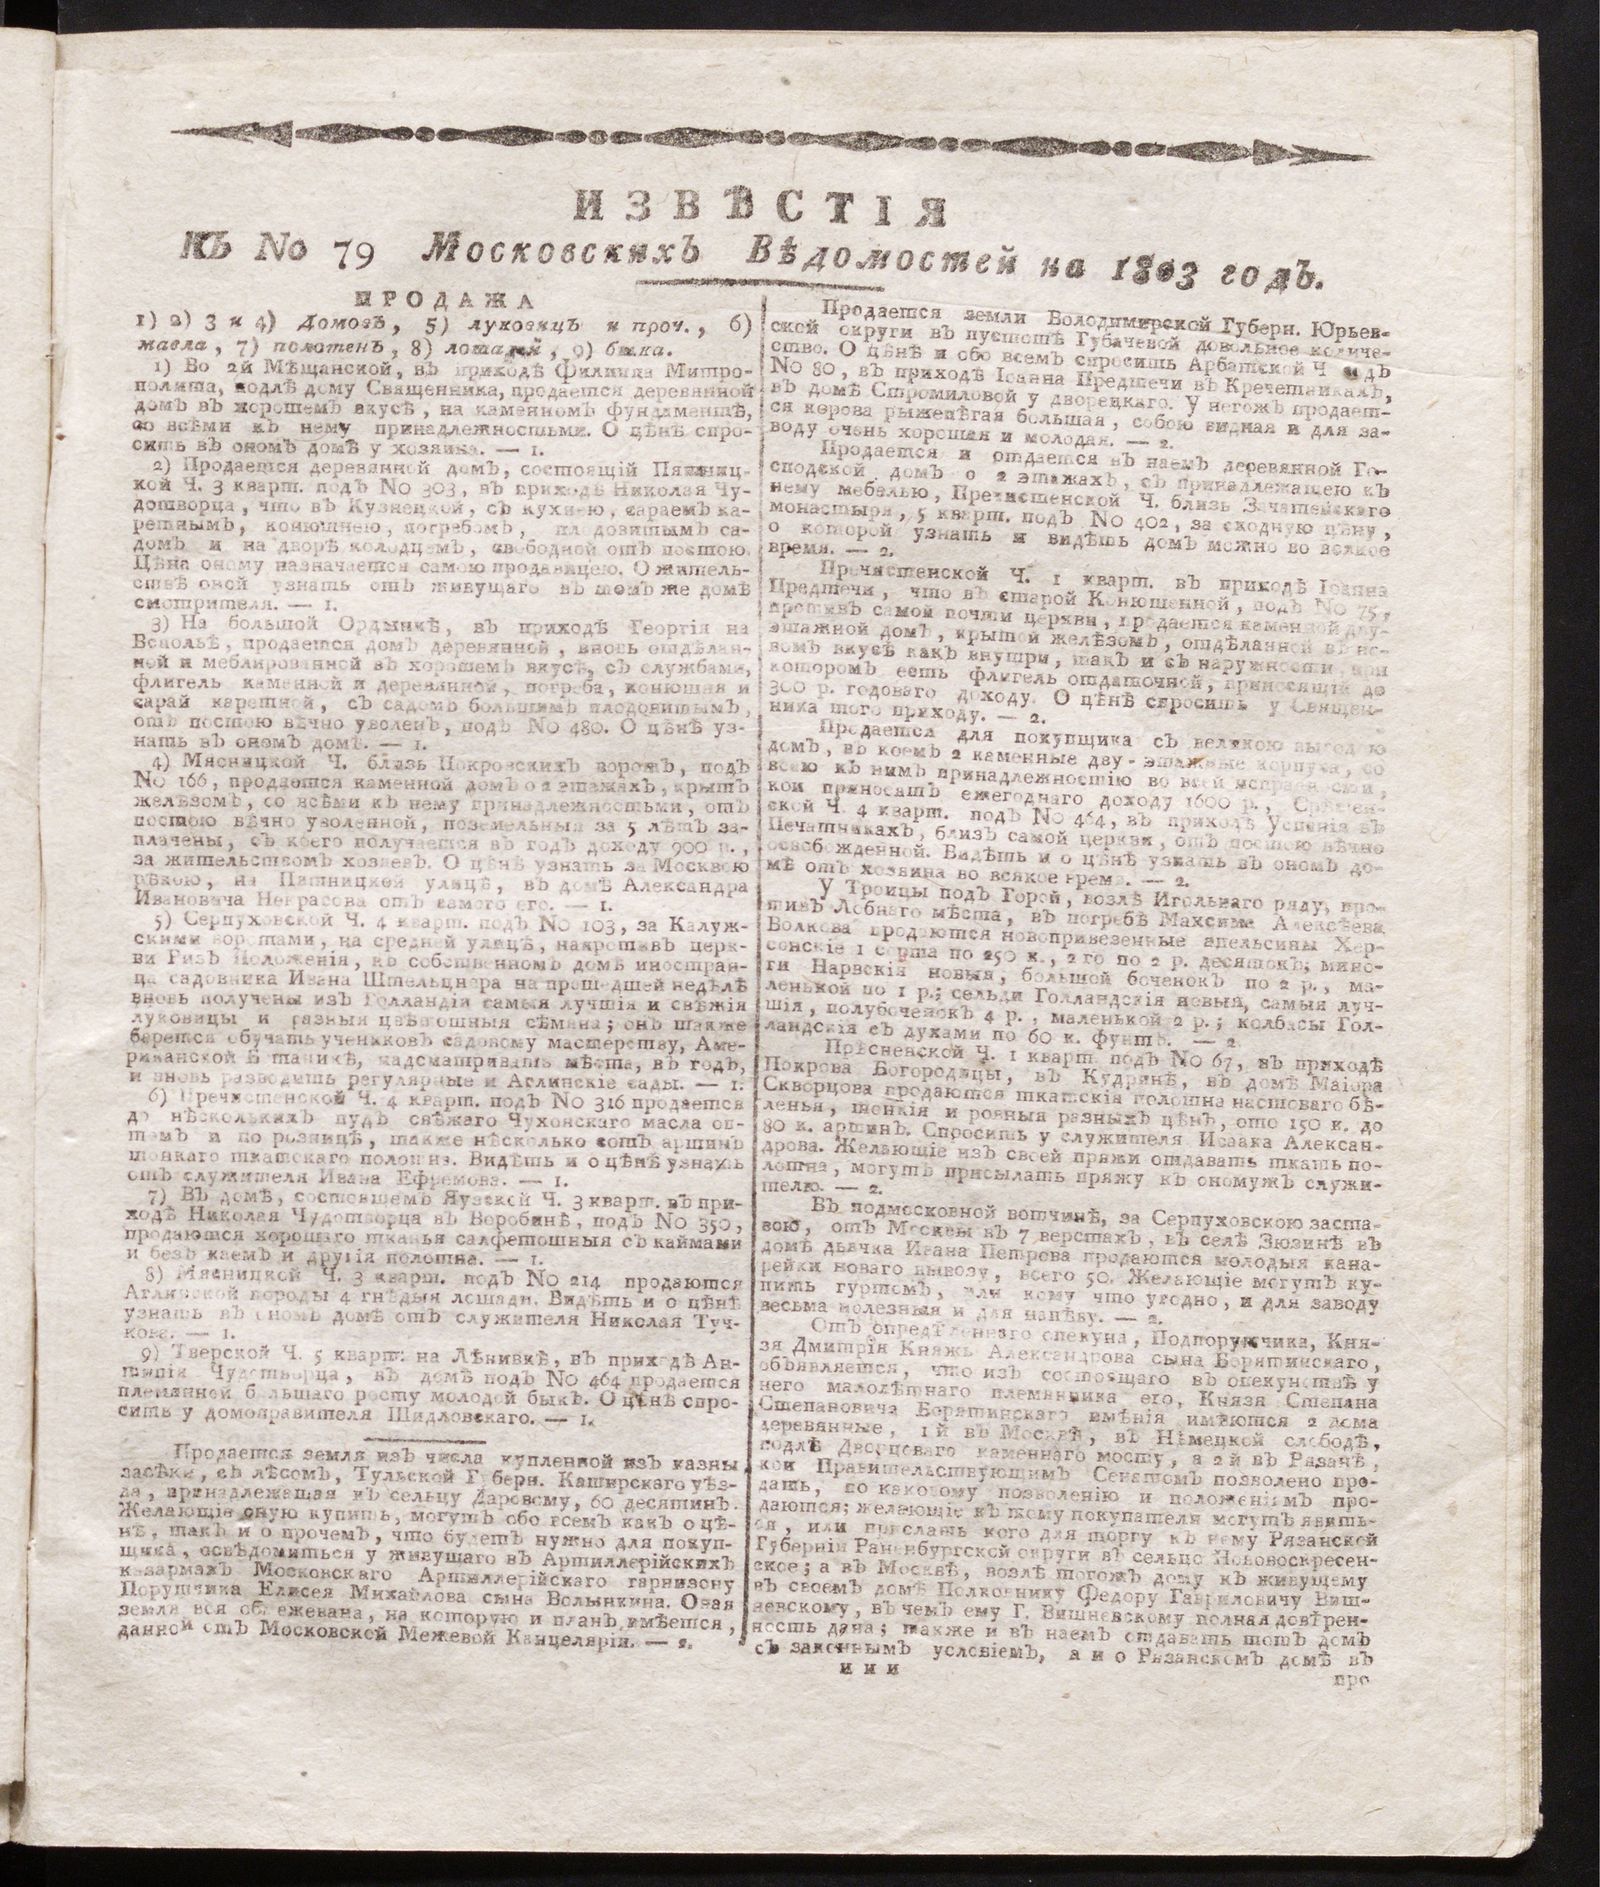 ИЗВѢСТІЯ
КЪ No 79 Московскихъ Вѣдомостей на 1803 годъ.
ПРОДАЖА
1) 2) 3 и 4) Домовъ, 5) луковицъ и проч., 6)
масла, 7) полотенъ, 8) лошадей, 9) быка.
1) Во 2й Мѣщанской, въ приходѣ Филиппа Митро-
полита, подлѣ дому Священника, продается деревянной
домъ въ хорошемъ вкусѣ, на каменномъ фундаментѣ,
со всѣми къ нему принадлежностьми. О цѣнѣ спро-
сить въ ономъ домѣ у хозяина. — 1.
2) Продается деревянной домъ, состоящій Пятниц-
кой Ч. 3 кварт. подъ No 303, въ приходѣ Николая Чу-
дотворца, что въ Кузнецкой, съ кухнею, сараемъ ка-
ретнымъ, конюшнею, погребомъ, плодовитымъ са-
домъ и на дворѣ колодцемъ, свободной отъ постою.
Цѣна оному назначается самою продавицею. О житель-
ствѣ оной узнать отъ живущаго въ томъ же домѣ
смотрителя. — 1.
3) На большой Ордынкѣ, въ приходѣ Георгія на
Вспольѣ, продается домъ деревянной, вновь отдѣлан-
ной и меблированной въ хорошемъ вкусѣ, съ службами,
флигель каменной и деревянной, погреба, конюшня и
сарай каретной, съ садомъ большимъ плодовитымъ,
отъ постою вѣчно уволенъ, подъ No 480. О цѣнѣ уз-
нать въ ономъ домѣ. — 1.
4) Мясницкой Ч. близь Покровскихъ воротъ, подъ
No 166, продается каменной домъ о 2 этажахъ, крытъ
желѣзомъ, со всѣми къ нему принадлежностьми, отъ
постою вѣчно уволенной, поземельныя за 5 лѣтъ за-
плачены, съ коего получается въ годъ доходу 900 р.,
за жительствомъ хозяевъ. О цѣнѣ узнать за Москвою
рѣкою, на Пятницкой улицѣ, въ домѣ Александра
Ивановича Некрасова отъ самого его. — 1.
5) Серпуховской Ч. 4 кварт. подъ No 103, за Калуж-
скими воротами, на средней улицѣ, напротивъ церк-
ви Ризъ Положенія, въ собственномъ домѣ иностран-
ца садовника Ивана Штельцнера на прошедшей недѣлѣ
вновь получены изъ Голландіи самыя лучшія и свѣжія
луковицы и разныя цвѣтошныя сѣмяна; онъ также
берется обучать учениковъ садовому мастерству, Аме-
риканской Ботаникѣ, надсматривать мѣста, въ годъ,
и вновь разводить регулярные и Аглинскіе сады. — 1.
6) Пречистенской Ч. 4 кварт. подъ No 316 продается
до нѣсколькихъ пудъ свѣжаго Чухонскаго масла оп-
томъ и по розницѣ, также нѣсколько сотъ аршинъ
тонкаго ткатскаго полотна. Видѣть и о цѣнѣ узнать
отъ служителя Ивана Ефремова. — 1.
7) Въ домѣ, состоящемъ Яузской Ч. 3 кварт. въ при-
ходѣ Николая Чудотворца въ Воробинѣ, подъ No 350,
продаются хорошаго тканья салфетошныя съ каймами
и безъ каемъ и другія полотна. — 1.
8) Мясницкой Ч. 3 кварт. подъ No 214 продаются
Аглинской породы 4 гнѣдыя лошади. Видѣть и о цѣнѣ
узнать въ ономъ домѣ отъ служителя Николая Туч-
кова. — 1.
9) Тверской Ч. 5 кварт. на Лѣнивкѣ, въ приходѣ Ан-
типія Чудотворца, въ домѣ подъ No 464 продается
племянной большаго росту молодой быкъ. О цѣнѣ спро-
сить у домоправителя Шидловскаго. — 1.
Продается земля изъ числа купленной изъ казны
засѣки, съ лѣсомъ, Тульской Губерн. Каширскаго уѣз-
да, принадлежащая къ сельцу Даровому, 60 десятинъ.
Желающіе оную купить, могутъ обо всемъ какъ о цѣ-
нѣ, такъ и о прочемъ, что будетъ нужно для покуп-
щика, освѣдомиться у живущаго въ Артиллерійскихъ
казармахъ Московскаго Артиллерійскаго гарнизону
Порутчика Елисея Михайлова сына Волынкина. Оная
земля вся обмежевана, на которую и планъ имѣется,
данной отъ Московской Межевой Канцеляріи. — 2.
Продается земли Володимирской Губерн. Юрьев-
ской округи въ пустотѣ Губачевой довольное количе-
ство. О цѣнѣ и обо всемъ спросить Арбатской Ч подъ
No 80, въ приходѣ Іоанна Предтечи въ Кречетникахъ,
въ домѣ Стромиловой у дворецкаго. У негожъ продает-
ся корова рыжепѣгая большая, собою видная и для за-
воду очень хорошая и молодая. — 2.
Продается и отдается въ наемъ деревянной Го-
сподской домъ о 2 этажахъ, съ принадлежащею къ
нему мебелью, Пречистенской Ч. близь Зачатейскаго
монастыря, 5 кварт. подъ No 402, за сходную цѣну,
о которой узнать и видѣть домъ можно во всякое
время. — 2.
Пречистенской Ч. 1 кварт. въ приходѣ Іоанна
Предтечи, что въ старой Конюшенной, подъ No 75,
противъ самой почти церкви, продается каменной дву-
этажной домъ, крытой желѣзомъ, отдѣланной въ но-
вомъ вкусѣ какъ внутри, такъ и съ наружности, при
которомъ есть флигель отдаточной, приносящій до
300 р. годоваго доходу. О цѣнѣ спросить у Священ-
ника того приходу. — 2.
Продается для покупщика съ великою выгодою
домъ, въ коемъ 2 каменные дву-этажные корпуса, со
всею къ нимъ принадлежностію во всей исправности,
кои приносятъ ежегоднаго доходу 1600 р., Срѣтен-
ской Ч. 4 кварт. подъ No 464, въ приходѣ Успенія въ
Печатникахъ, близъ самой церкви, отъ постою вѣчно
освобожденной. Видѣть и о цѣнѣ узнать въ ономъ до-
мѣ отъ хозяина во всякое время. — 2.
У Троицы подъ Горой, возлѣ Игольнаго ряду, про-
тивъ Лобнаго мѣста, въ погребѣ Максима Алексѣева
Волкова продаются новопривезенные апельсины Хер-
сонскіе 1 сорта по 250 к., 2го по 2 р. десятокъ; мино-
ги Нарвскія новыя, большой боченокъ по 2 р., ма-
ленькой по 1 р.; сельди Голландскія новыя, самыя луч-
шія, полубоченокъ 4 р., маленькой 2 р.; колбасы Гол-
ландскія съ духами по 60 к. фунтъ. — 2.
Прѣсненской Ч. 1 кварт. подъ No 67, въ приходѣ
Покрова Богородицы, въ Кудринѣ, въ домѣ Маіора
Скворцова продаются ткатскія полотна настоваго бѣ-
ленья, тонкія и ровныя разныхъ цѣнъ, ото 150 к. до
80 к. аршинъ. Спросить у служителя Исаака Алексан-
дрова. Желающіе изъ своей пряжи отдавать ткать по-
лотна, могутъ присылать пряжу къономужъ служи-
телю. — 2.
Въ подмосковной вотчинѣ, за Серпуховскою заста-
вою, отъ Москвы въ 7 верстахъ, въ селѣ Зюзинѣ въ
домѣ дьячка Ивана Петрова продаются молодыя кана-
рейки новаго вывозу, всего 50. Желающіе могутъ ку-
пить гуртомъ, или кому что угодно, и для заводу
весьма полезныя и для напѣву. — 2.
Отъ опредѣленнаго опекуна, Подпорутчика, Кня-
зя Дмитрія Княжъ Александрова сына Борятинскаго,
объявляется, что изъ состоящаго въ опекунствѣ у
него малолѣтнаго племянника его, Князя Степана
Степановича Борятинскаго имѣнія имѣются 2 дома
деревянные, 1й въ Москвѣ, въ Нѣмецкой слободѣ,
подлѣ Дворцоваго каменнаго мосту, а 2й въ Рязанѣ,
кои Правительствующимъ Сенатомъ позволено про-
дать, по какому позволенію и положеніямъ про-
даются; желающіе къ тому покупатели могутъ явить-
ся, или прислать кого для торгу къ нему Рязанской
Губерніи Раненбургской округи въ сельцо Нововоскресен-
ское; а въ Москвѣ, возлѣ тогожъ дому къ живущему
въ своемъ домѣ Полковнику Федору Гавриловичу Виш-
невскому, въ чемъ ему Г. Вишневскому полная довѣрен-
ность дана; также и въ наемъ отдавать тотъ домъ
съ законнымъ условіемъ, а и о Рязанскомъ домѣ въ
и и и
про